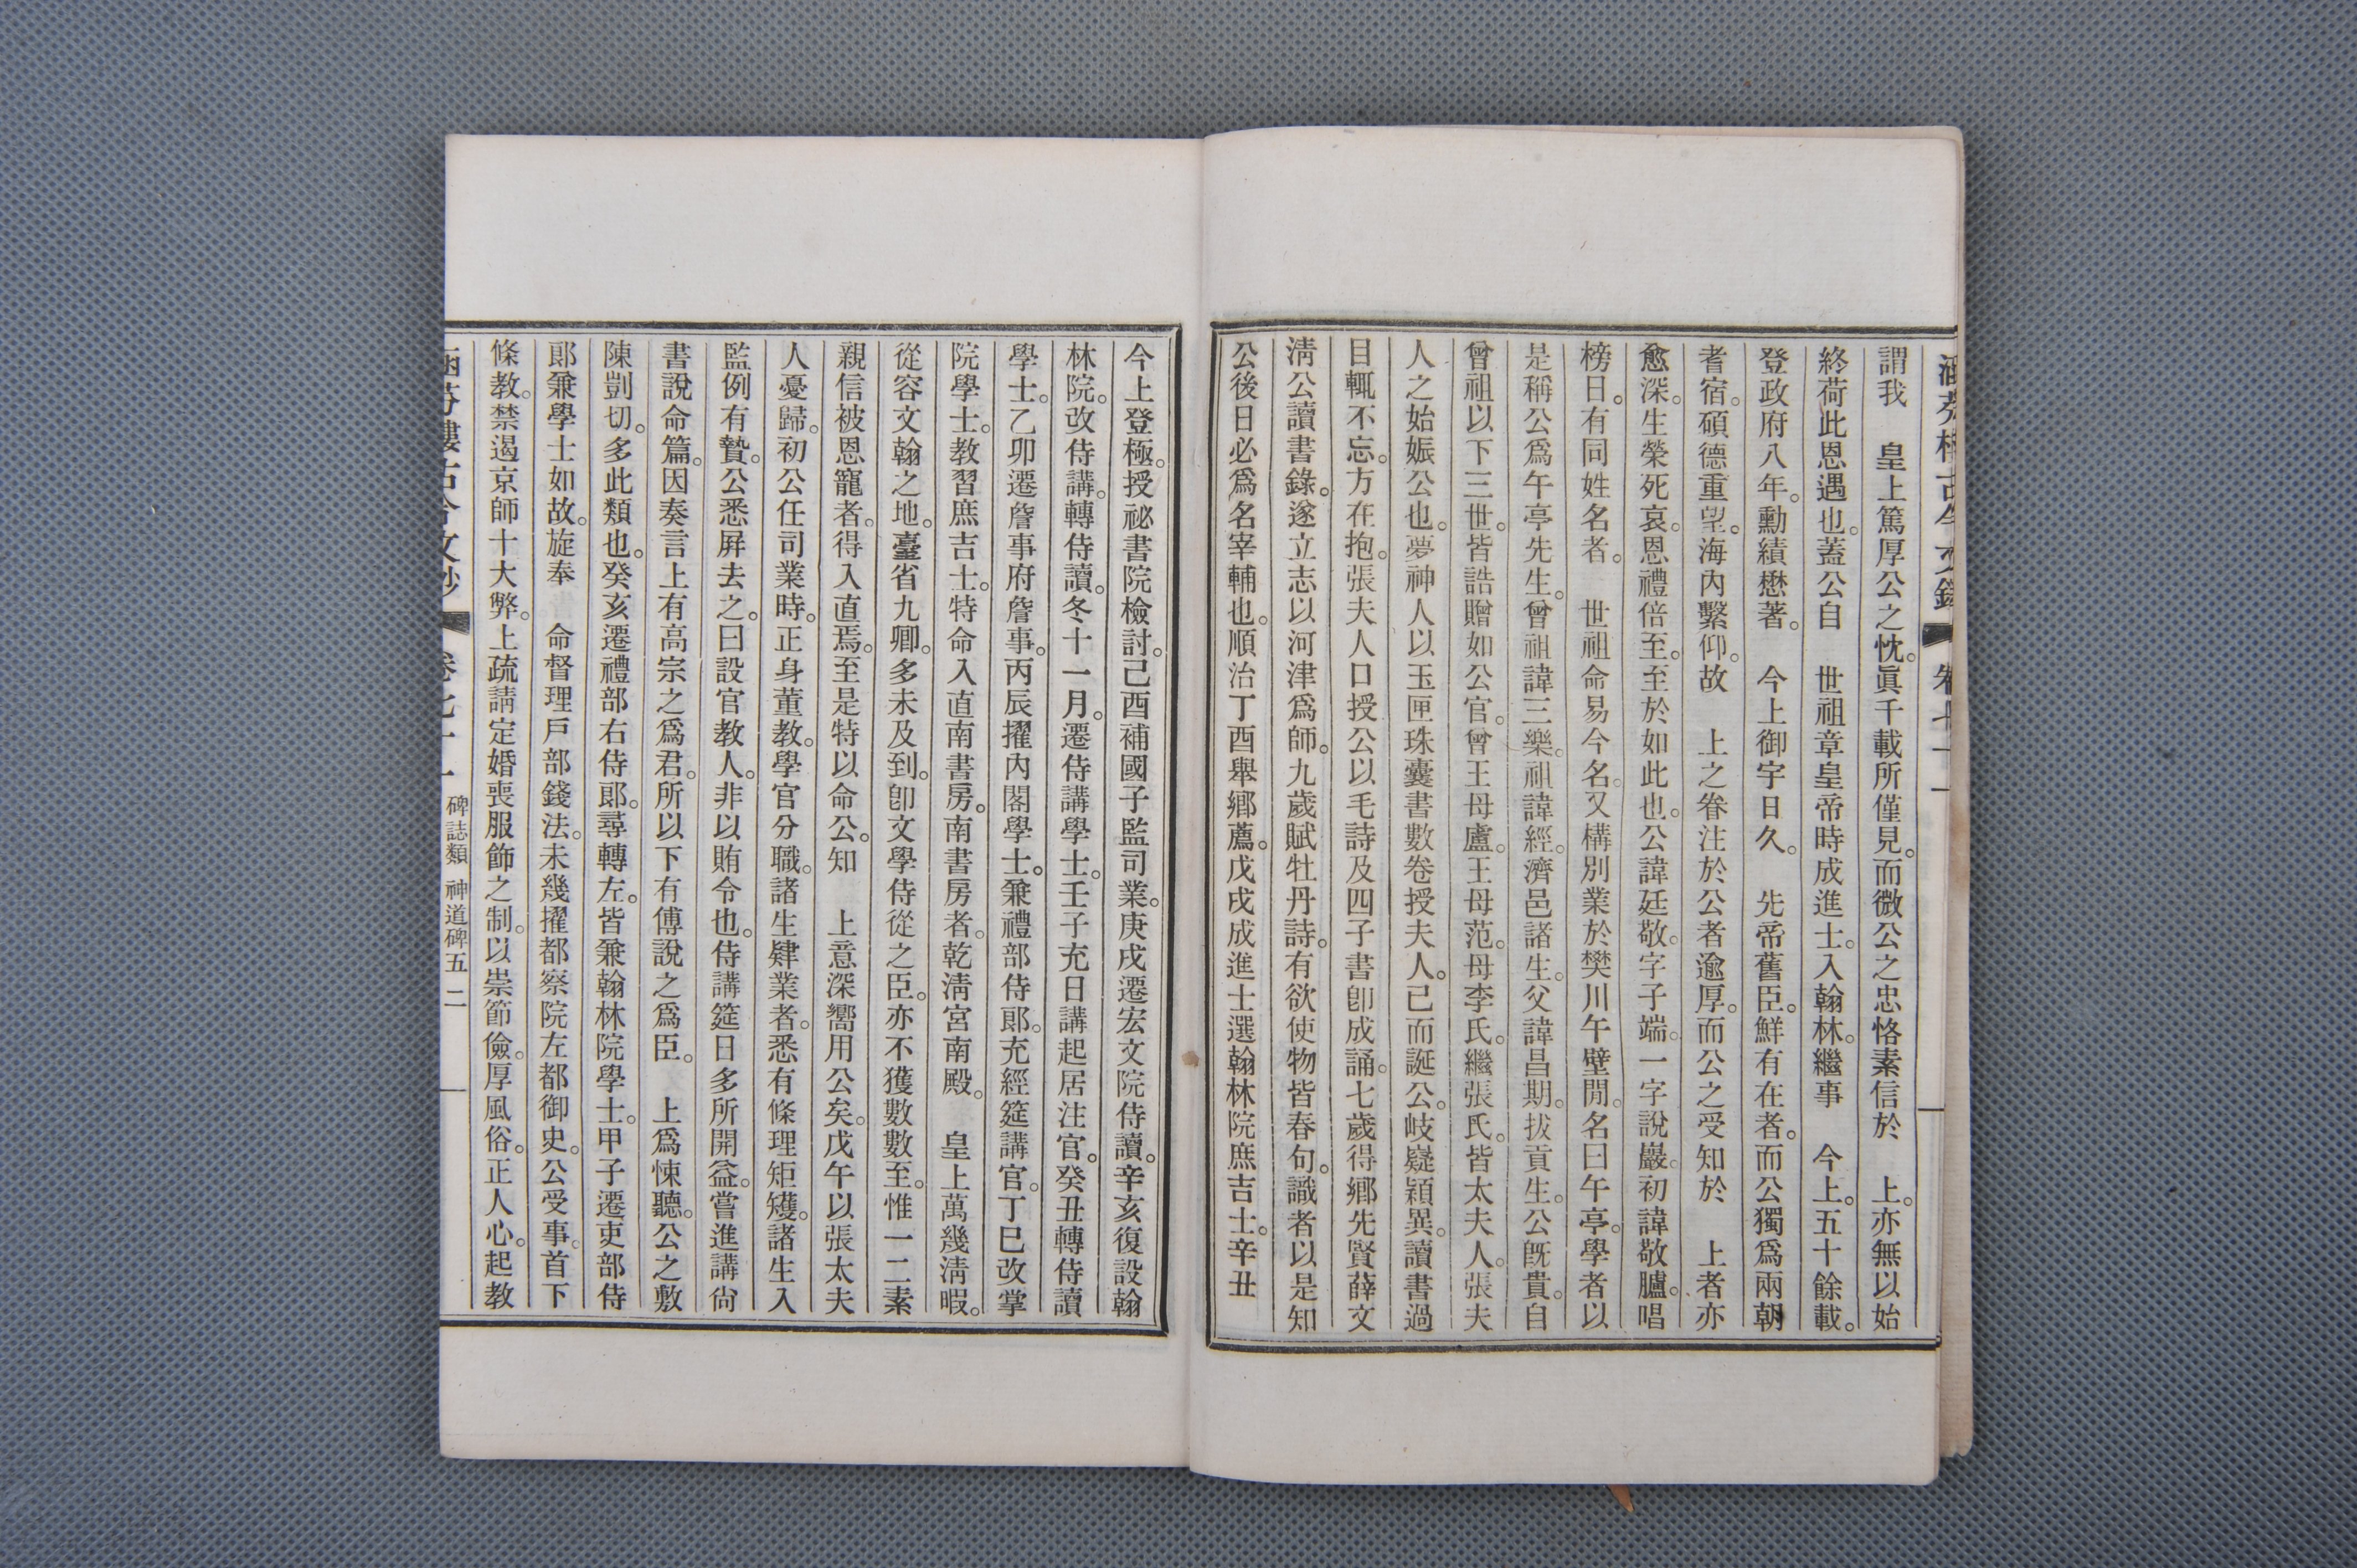 謂我　皇上篤厚公之忱。眞千載所僅見。而微公之忠恪素信於　上。亦無以始
終荷此恩遇也。蓋公自　世祖章皇帝時成進士。入翰林。繼事　今上。五十餘載。
登政府八年。勳績懋著。　今上御宇日久。　先帝舊臣。鮮有在者。而公獨爲兩朝
耆宿。碩德重望。海內繫仰。故　上之眷注於公者逾厚。而公之受知於　上者亦
愈深。生榮死哀。恩禮倍至。至於如此也。公諱廷敬。字子端。一字說巖。初諱敬臚。唱
榜日。有同姓名者。　世祖命易今名。又構別業於樊川午壁閒。名曰午亭。學者以
是稱公爲午亭先生。曾祖諱三樂。祖諱經。濟邑諸生。父諱昌期。拔貢生。公旣貴。自
曾祖以下三世。皆誥贈如公官。曾王母盧。王母范。母李氏。繼張氏。皆太夫人。張夫
人之始娠公也。夢神人以玉匣珠囊書數卷授夫人。已而誕公。岐嶷穎異。讀書過
目輒不忘。方在抱。張夫人口授公以毛詩及四子書卽成誦。七歲得鄉先賢薛文
淸公讀書錄。遂立志以河津爲師。九歲賦牡丹詩。有欲使物皆春句。識者以是知
公後日必爲名宰輔也。順治丁酉舉鄉薦。戊戌成進士選翰林院庶吉士。辛丑
今上登極。授祕書院檢討。己酉補國子監司業。庚戌遷宏文院侍讀。辛亥復設翰
林院。改侍講。轉侍讀。冬十一月。遷侍講學士。壬子充日講起居注官。癸丑轉侍讀
學士。乙卯遷詹事府詹事。丙辰擢內閣學士。兼禮部侍郞。充經筵講官。丁巳改掌
院學士。教習庶吉士。特命入直南書房。南書房者。乾淸宮南殿。　皇上萬幾淸暇。
從容文翰之地。臺省九卿。多未及到。卽文學侍從之臣。亦不獲數數至。惟一二素
親信被恩寵者。得入直焉。至是特以命公。知　上意深嚮用公矣。戊午以張太夫
人憂歸。初公任司業時。正身董教。學官分職。諸生肄業者。悉有條理矩矱。諸生入
監例有贄。公悉屛去之。曰設官教人。非以賄令也。侍講筵日多所開益。嘗進講尙
書說命篇。因奏言上有高宗之爲君。所以下有傅說之爲臣。　上爲悚聽。公之敷
陳剴切。多此類也。癸亥遷禮部右侍郞。尋轉左。皆兼翰林院學士。甲子遷吏部侍
郞兼學士如故。旋奉　命督理戶部錢法。未幾擢都察院左都御史。公受事。首下
條教。禁遏京師十大弊。上疏請定婚喪服飾之制。以崇節儉。厚風俗。正人心。起教
涵芬樓古今文鈔　卷七十一　碑誌類　神道碑五　二